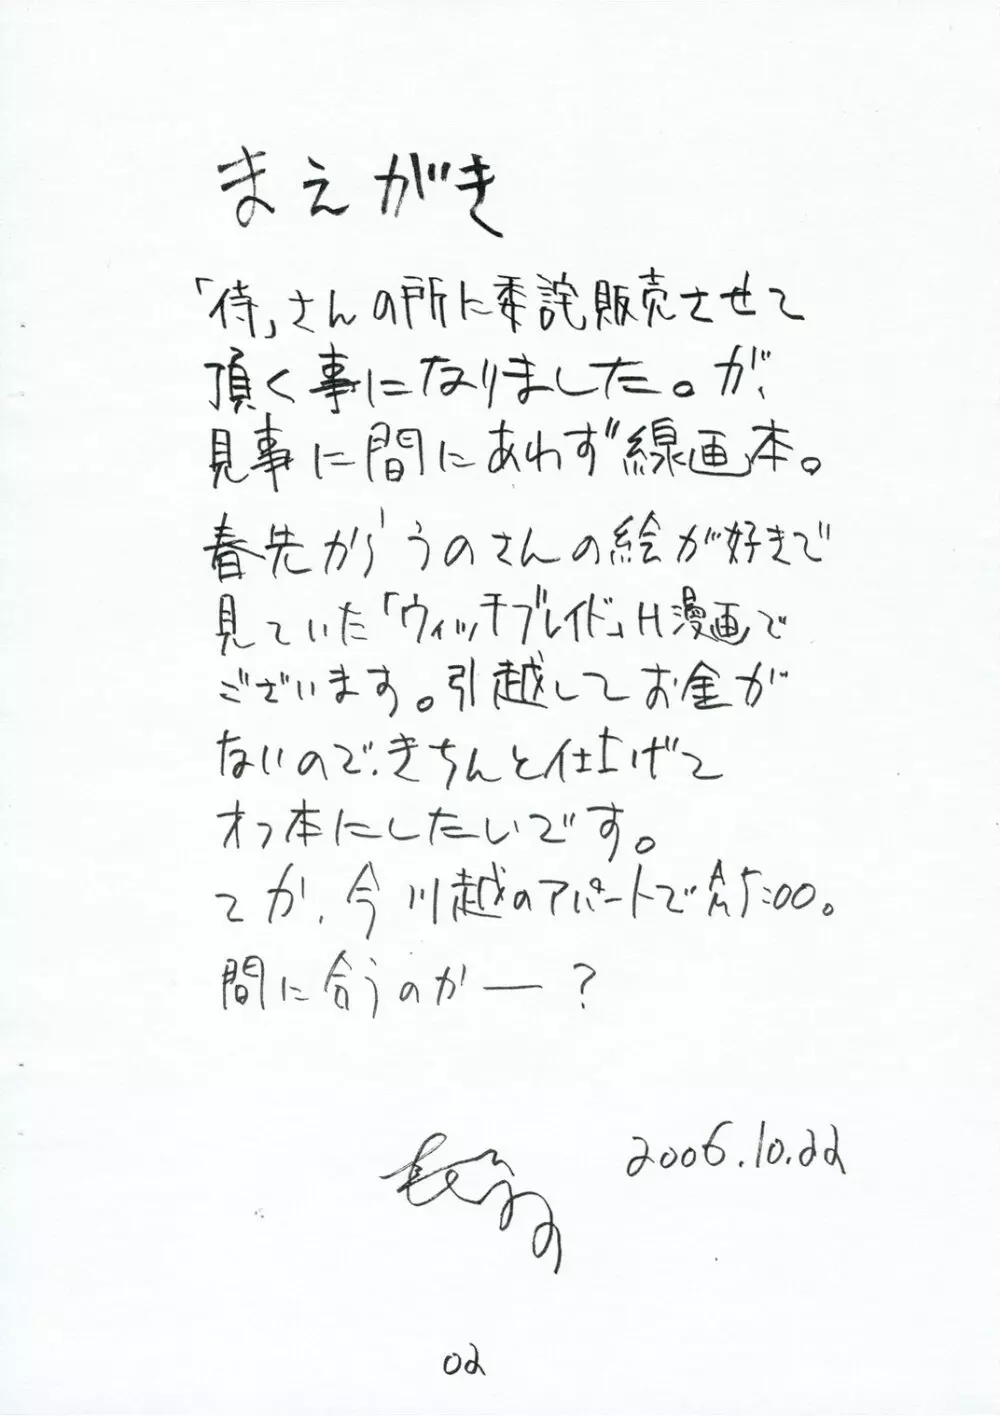 まえがき
「侍」さんの所に委託販売させて
頂く事になりました。が、
見事に間にあわず線画本。
春先から うのさんの絵が好きで
見ていた「ウィッチブレイド」H漫画で
ございます。引越してお金が
ないので、きちんと仕上げて
オフ本にしたいです。
てか、今川越のアパートでAM5:00。
間に合うのかー？
2006.10.22
02